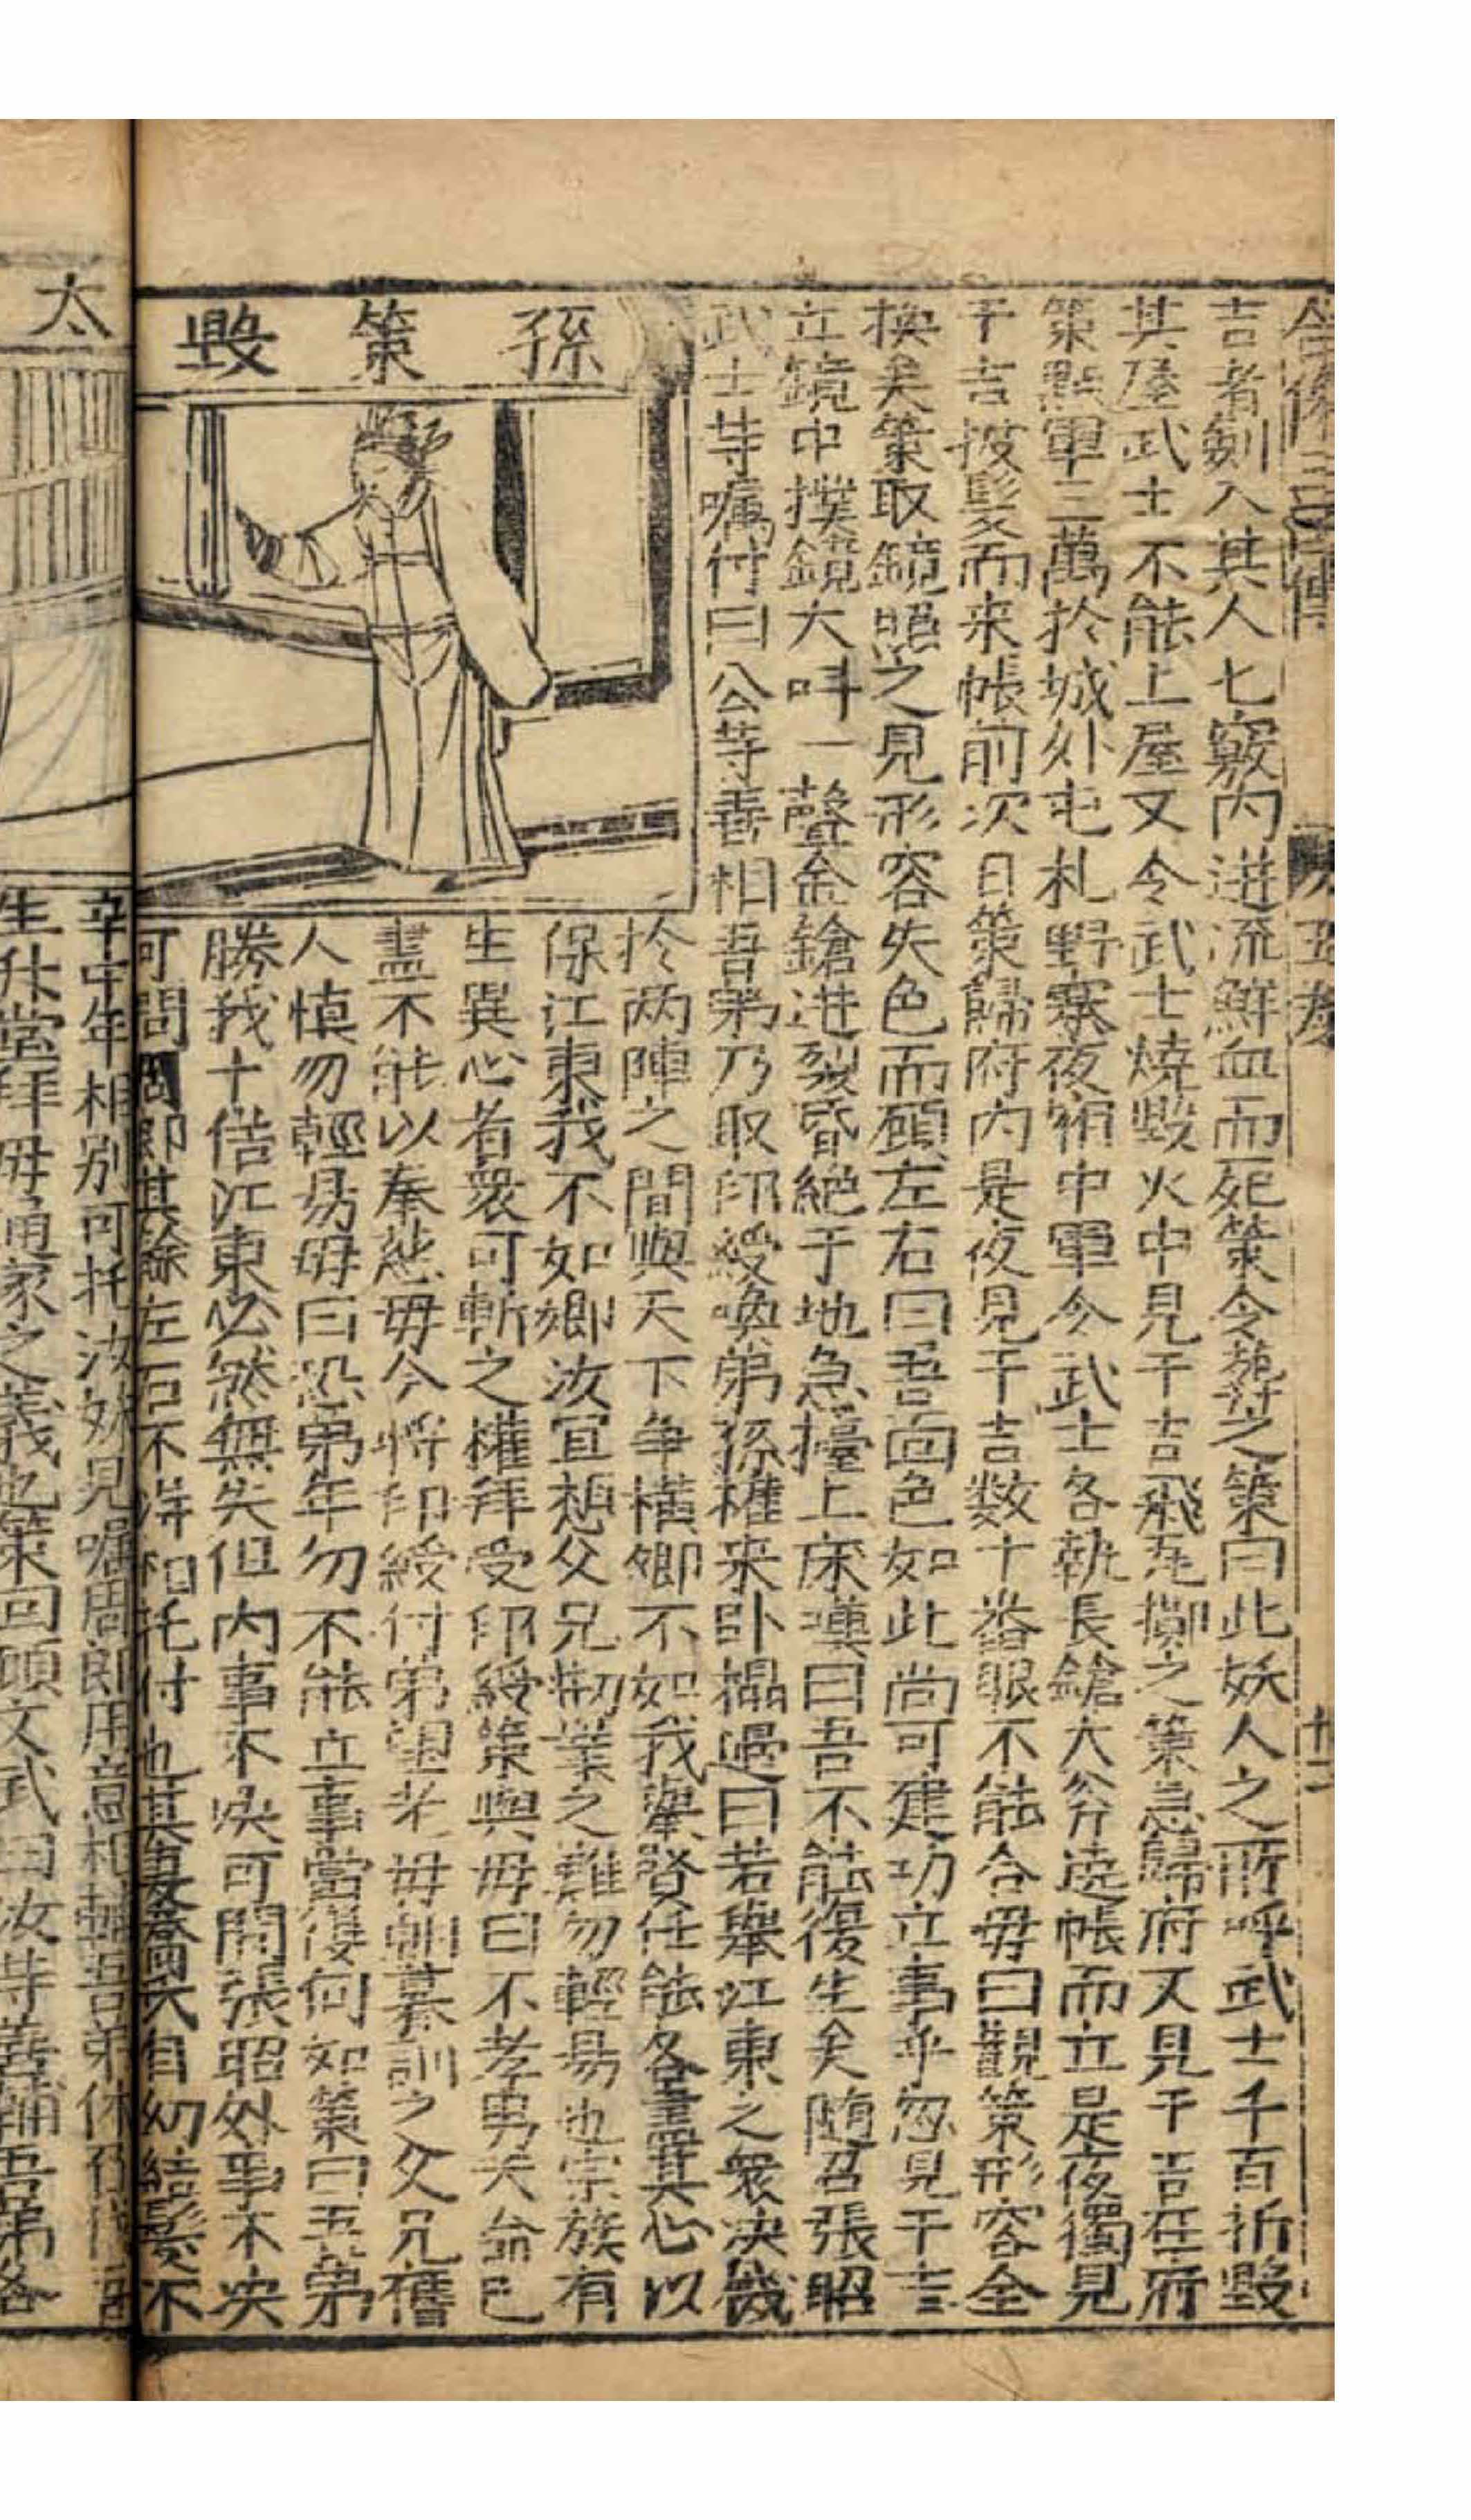 吉者劍入其人七竅內迸流鮮血而死策令葬之策曰此妖人之所呼武士千百折毀
其屋武士不能上屋又令武士燒毀火中見于吉飛瓦擲之策急歸府又見于吉在府
策點軍三萬於城外屯札野寨夜宿中軍令武士各執長鎗大斧遶帳而立是夜獨見
于吉披髮而来帳前次日策歸府內是夜見于吉数十番眼不能合毋曰觀策形容全
換矣策取鏡照之見形容失色而顧左右曰吾面色如此尚可建功立事乎忽見于吉
立鏡中撲鏡大呌一聲金鎗迸裂昏絕于地急擡上床嘆曰吾不能復生矣随召張昭
武士等囑付曰公等善相吾弟乃取印綬喚弟孫權来卧榻邊曰若舉江東之衆决機
於两陣之間與天下争橫卿不如我舉賢任能各盡其心以
保江東我不如卿汝宜想父兄刱業之難勿輕易也宗族有
生異心者衆可斬之權拜受印綬策與毋曰不孝男天命已
盡不能以奉慈毋今將印綬付弟望老毋朝暮訓之父兄舊
人慎勿輕易毋曰恐弟年勿不能立事當復何如策曰吾弟
勝我十倍江東必然無失但内事不决可問張昭外事不决
可問周郎其餘左右不詳和托付也其妻喬氏自幼結髮不
孫策毀
太
卒中年相別可托汝妹見囑周郎用意相輔吾弟休
生升堂拜毋通家之義也策回顧文武曰汝等善輔吾弟各